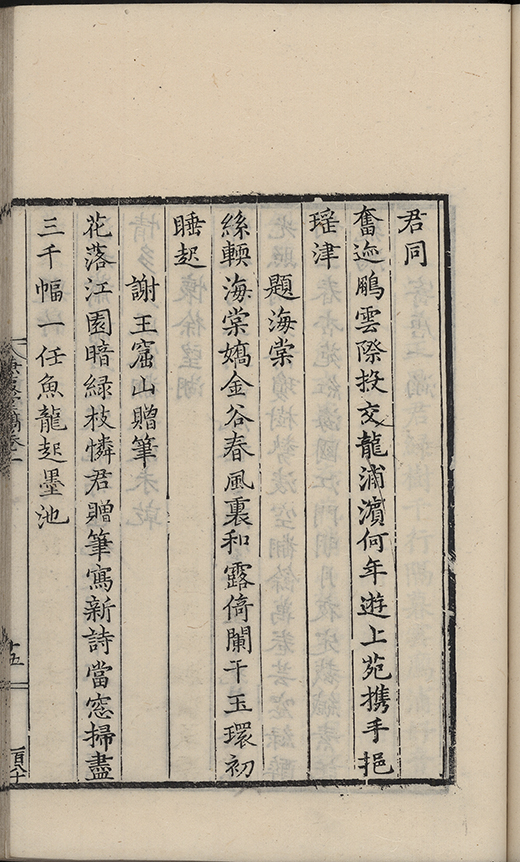 君同
奮迹鵬雲際投交龍浦濵何年遊上苑携手挹
瑶津
題海棠
絲輭海棠嬌金谷春風裏和露倚闌干玉環初
睡起
謝王窟山贈筆
花落江園暗綠枝憐君贈筆寫新詩當窓掃盡
三千幅一任魚龍起墨池
五